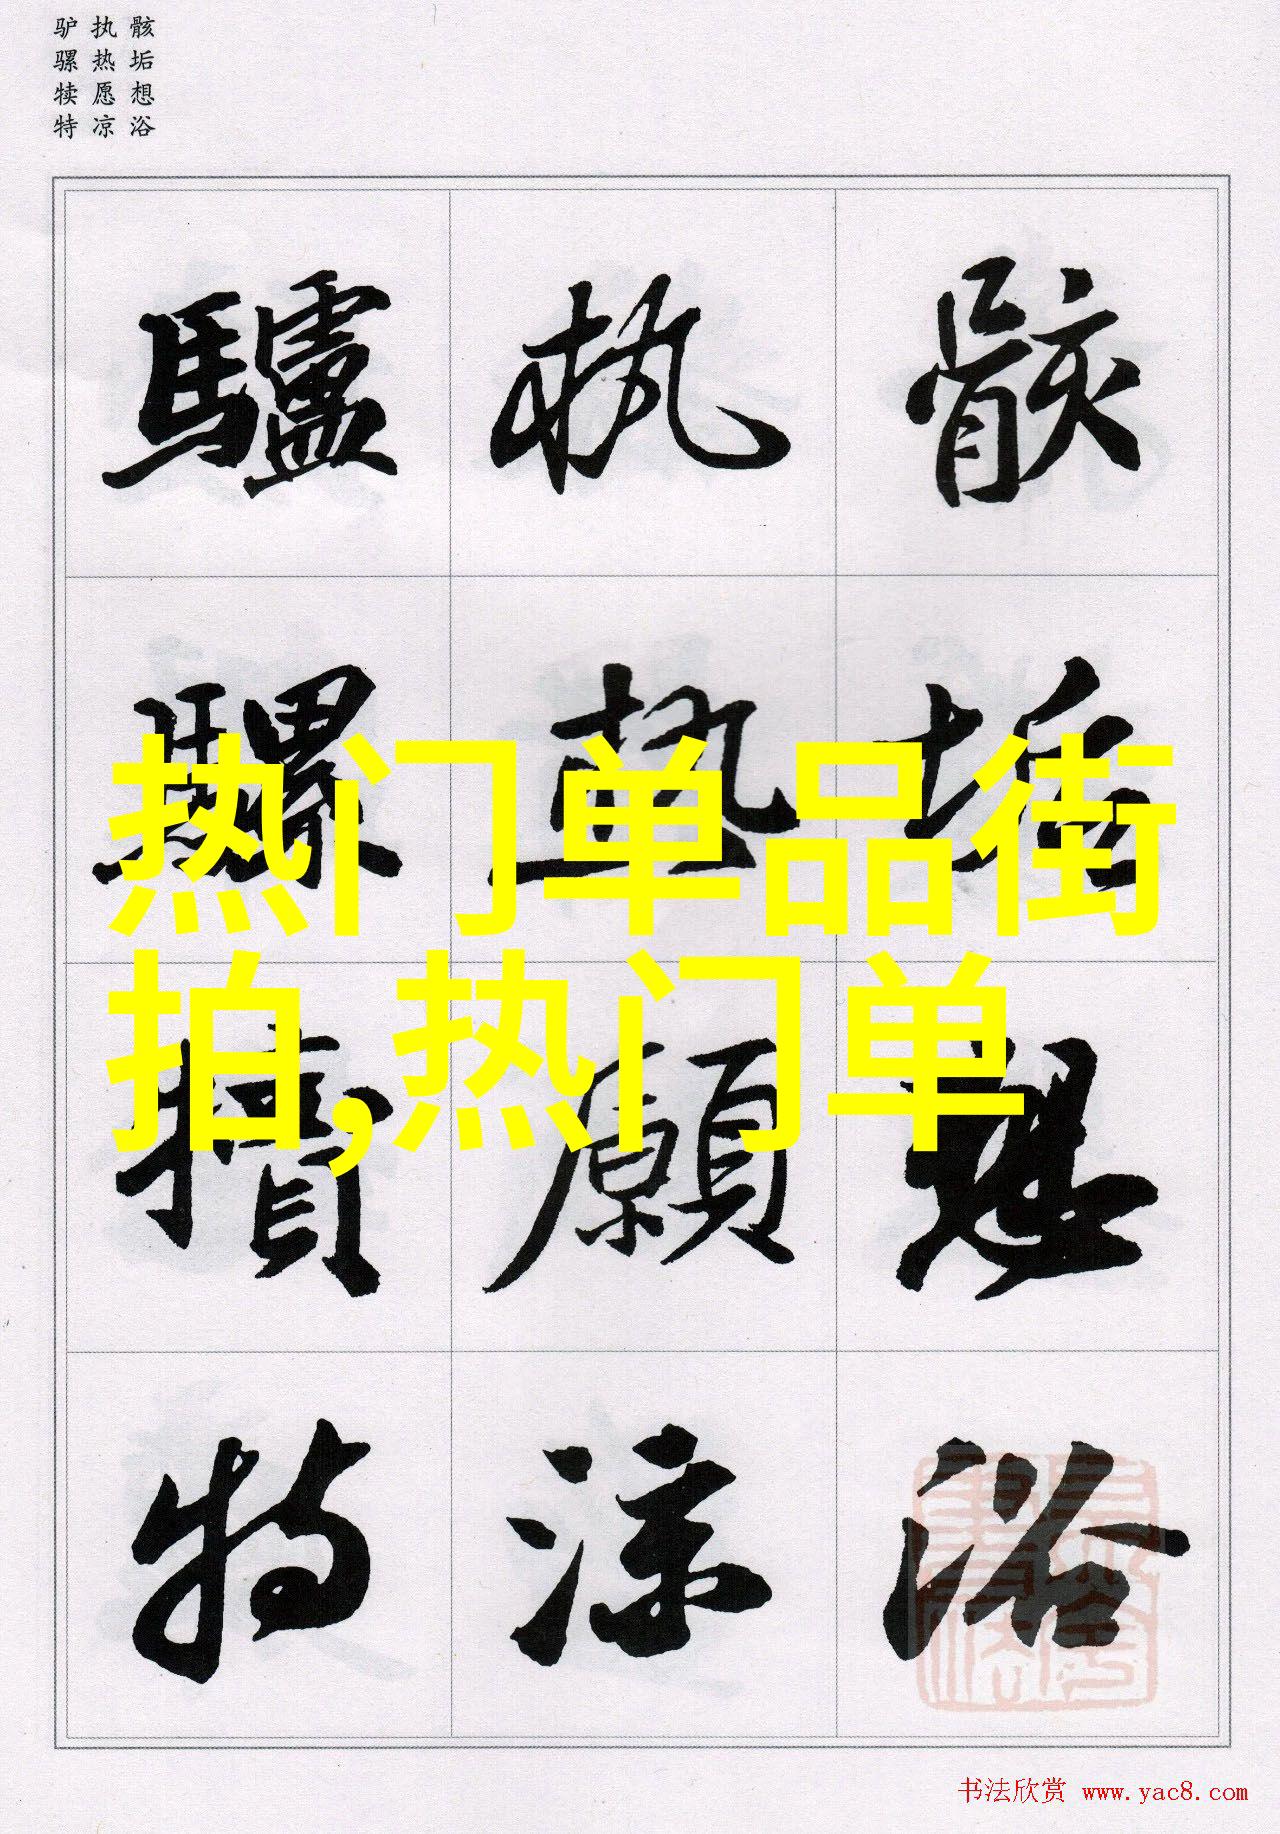 骸垢想浴
执热愿凉
驴骡犊特
骸垢想浴
執熱願涼
驢騾犢特
热门单品街
拍,热门单
书法欣赏 www.yac8.com